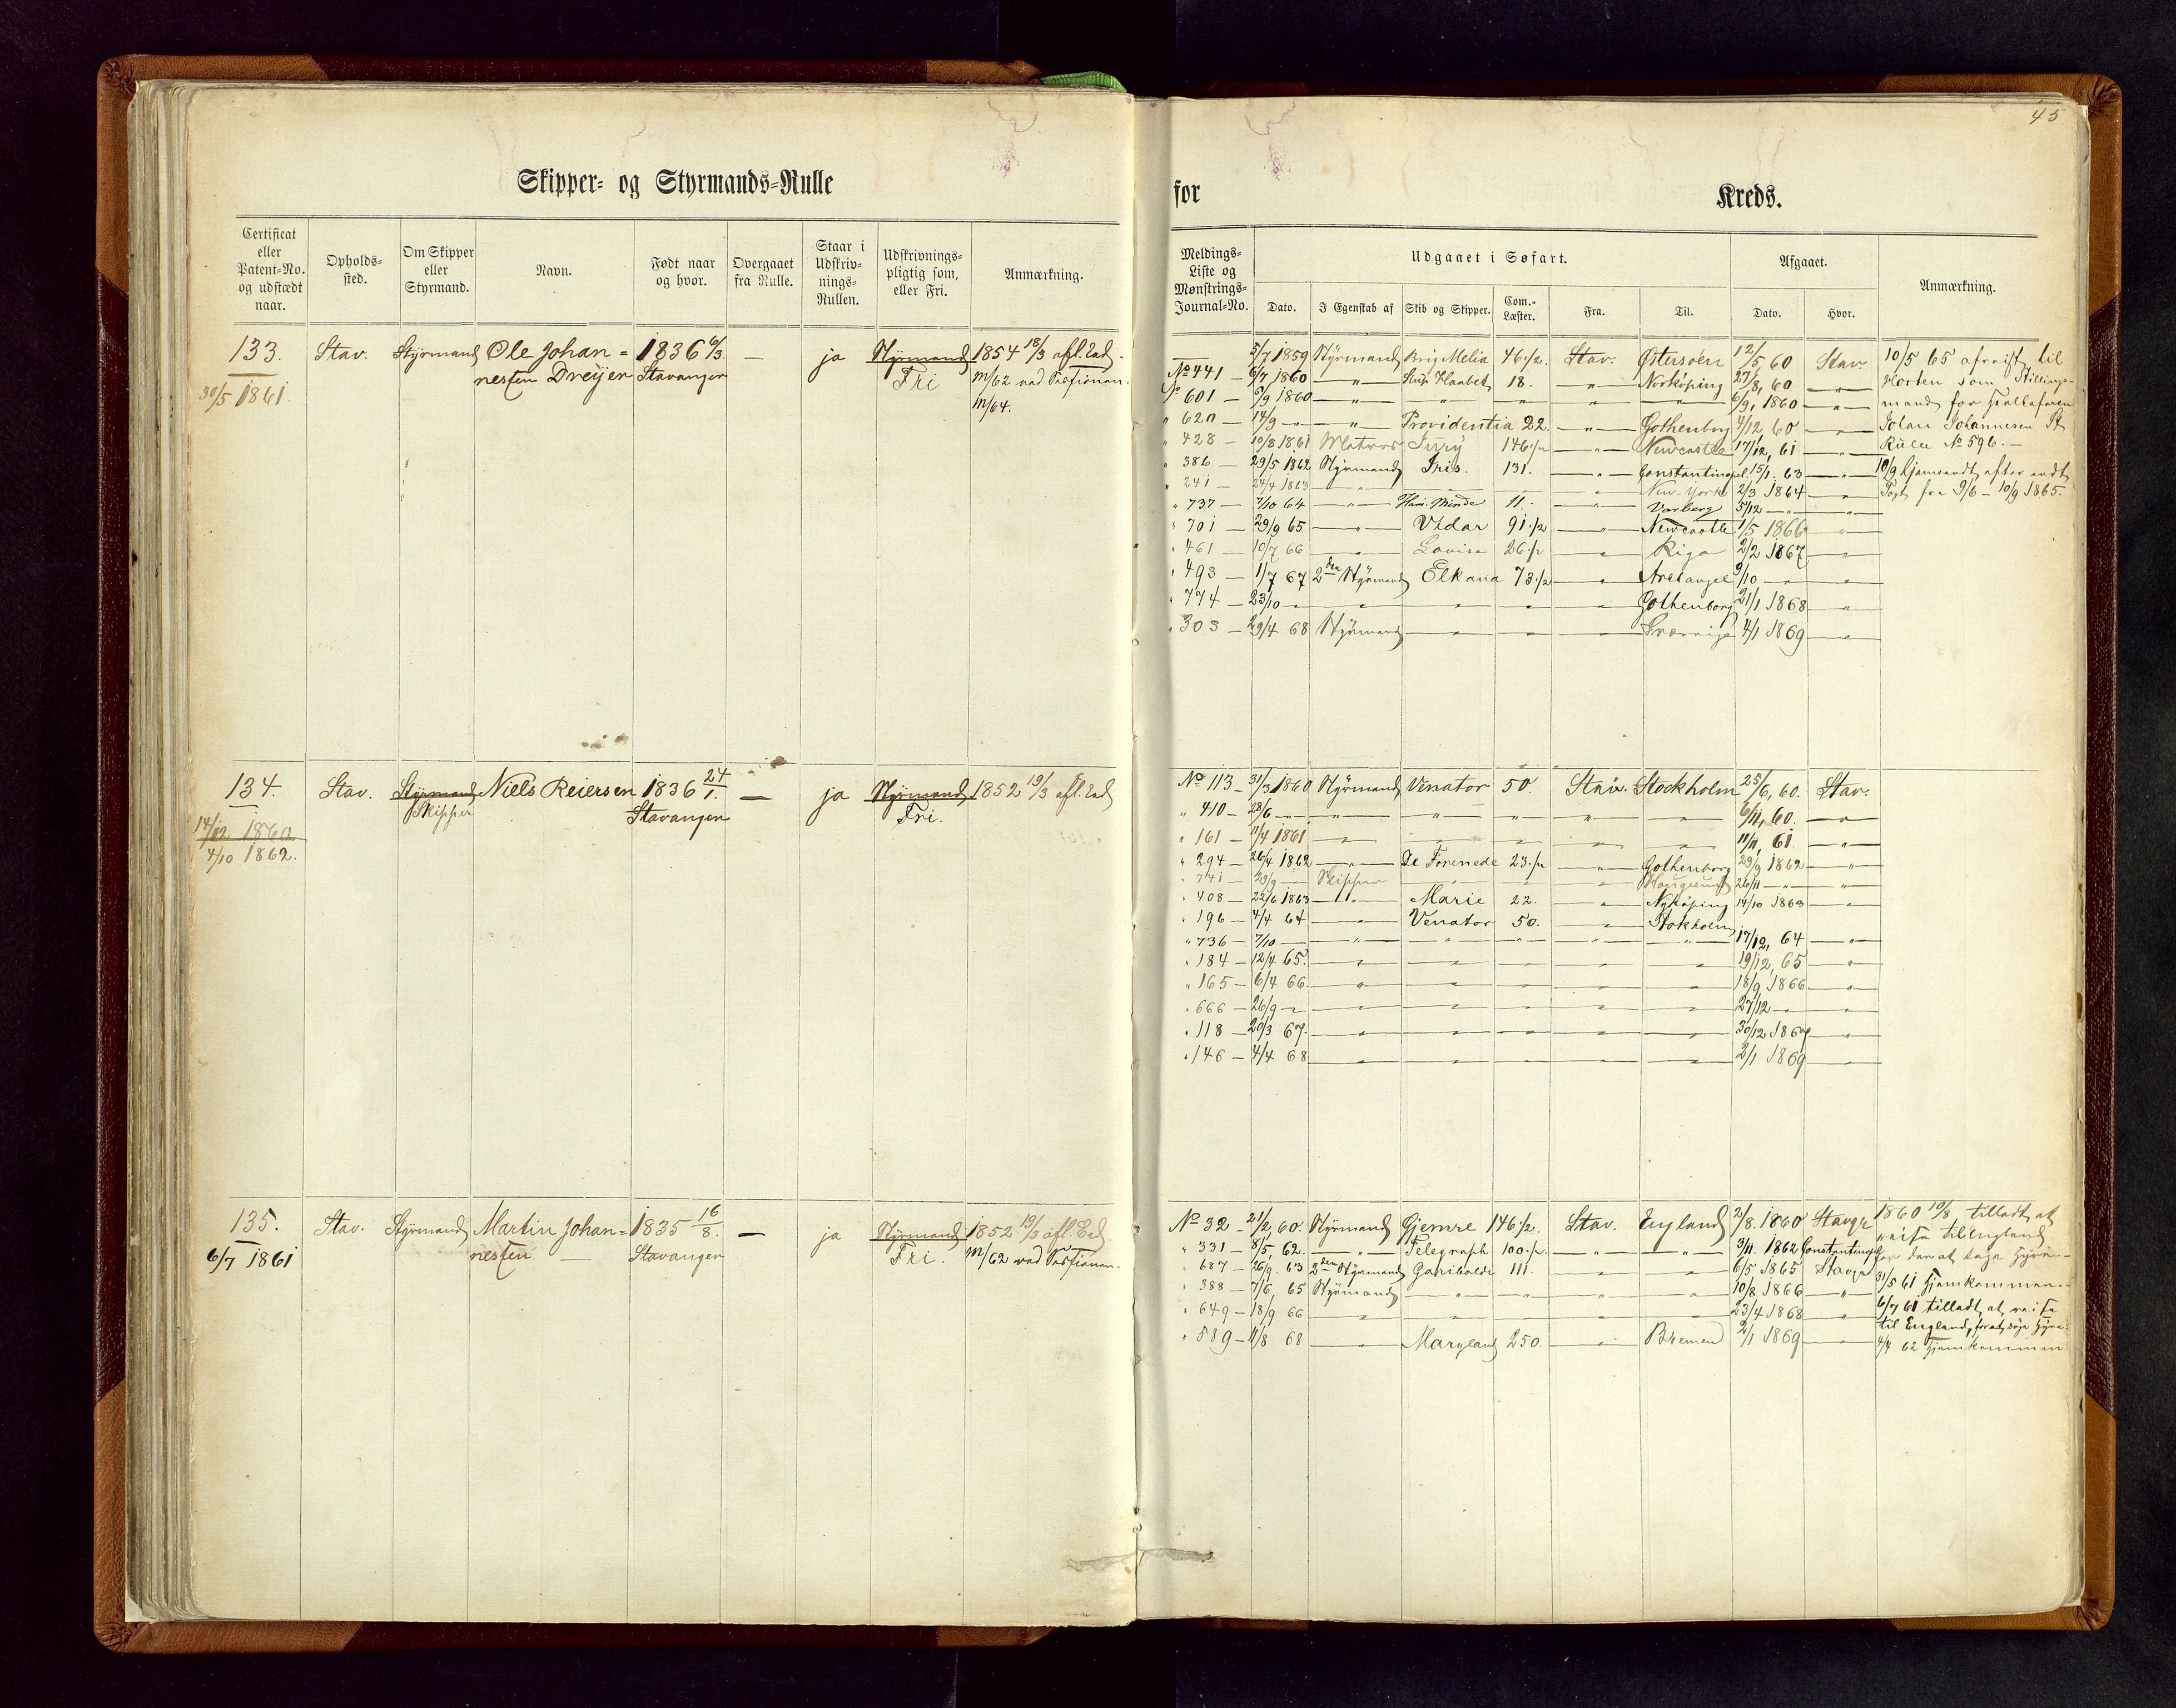 45
Skipper- og Styrmands-Rulle
for
Kreds.
Certificat eller Patent-No. og udstædt naar.
Opholds-sted.
Om Skipper eller Styrmand.
Navn.
Født naar og hvor.
Overgaaet fra Rulle.
Staar i Udskriv-nings-Rullen.
Udskrivnings-pligtig som, eller Fri.
Anmærkning.
Meldings-Liste og Mønstrings-Journal-No.
Udgaaet i Søfart.
Dato.
I Egenskab af
Skib og Skipper.
Com.-Læster.
Fra.
Til.
Afgaaet.
Dato.
Hvor.
Anmærkning.
133. Stav. Styrmand Ole Johan= 1836 6/3 — ja Styrmand 1854 18/3 afl. Ed.
30/5 1861. nesen Dreyer Stavanger Fri m/62 ved
m/64.
— 5/7 1859 Styrmand Brig Melia 46 1/2 Stav. Østersøen 12/5 60 Stav. 10/5 65 afreist til
No 441 — 6/7 1860 —"— Slup Haabet 18. —"— Norköping 27/8, 60 —"— Horten som Stillings-
No 601 — 6/9 1860 —"— —"— —"— —"— 6/9, 1860 —"— mand for
" 620 — 14/9 —"— —"— Providentia 22. —"— Gothenborg 4/12 60 —"— Johannesen St
" 428 — 10/8 1861 Matros Jury 146 1/2 —"— Newcastle 17/12, 61 —"— Rulle No 596. —
" 386 — 29/5 1862 Styrmand Iris. 131. —"— Constantinopel 15/1. 63 —"— 10/9 hjemsendt efter endt
" 241 — 24/4 1863 —"— —"— —"— New-York 2/3 1864 —"— Togt fra 9/6 – 10/9 1865.
" 737 — 7/10 64 —"— Minde 11. —"— Varberg 5/12 —"— —"—
" 701 — 29/9 65 —"— Vidar 91 1/2 —"— Newcastle 1/5 1866 —"—
" 461 — 10/7 66 —"— Lovise 26 1/2 —"— Riga 2/2 1867 —"—
" 493 — 1/7 67 2den Styrmand Elkana 73 1/2 —"— Archangel 9/10 —"— —"—
" 774 — 23/10 —"— —"— —"— —"— —"— Gothenborg 21/1 1868 —"—
" 303 — 29/4 68 Styrmand —"— —"— —"— Sverrige 4/1 1869 —"—
134. Stav. Styrmand Niels Reiersen 1836 24/1. — ja Styrmand 1852 19/3 afl. Ed
Skipper Stavanger Fri.
14/12 1860
4/10 1862.
No 113 — 31/3 1860 Styrmand Venator 50. Stav. Stockholm 25/6, 60. Stav.
" 410 — 28/6 —"— —"— —"— —"— —"— —"— 6/11, 60. —"—
" 161 — 11/4 1861 —"— —"— —"— —"— —"— 11/11, 61. —"—
" 294 — 26/4 1862 —"— De Forenede 23 1/2 —"— Gothenborg 29/9 1862 —"—
" 741 — 29/9 —"— Skipper —"— —"— —"— Haugesund 26/11 —"— —"—
" 408 — 22/6 1863 —"— Marie 22. —"— Nyköping 14/10 1863 —"—
" 196 — 4/4 64 —"— Venator 50. —"— Stokholm
" 736 — 7/10 —"— —"— —"— —"— —"— —"— 17/12, 64 —"—
" 184 — 12/4 65. —"— —"— —"— —"— —"— 19/12, 65 —"—
" 165 — 6/4 66 —"— —"— —"— —"— —"— 18/9 1866 —"—
" 666 — 26/9 —"— —"— —"— —"— —"— —"— 27/12 —"— —"—
" 118 — 20/3 67. —"— —"— —"— —"— —"— 30/12 1867 —"—
" 146 — 4/4 68 —"— —"— —"— —"— —"— 2/1 1869 —"—
135. Stav. Styrmand Martin Johan= 1835 16/8. — ja Styrmand 1852 19/3 afl. Ed.
6/7 1861 nesen — Stavanger Fri. m/62 ved
No 32 — 21/2, 60. Styrmand Gjemre 146 1/2. Stav. England 2/8. 1860 Stavgr 1860 10/8 tilladt at
" 331 — 8/5, 62. —"— Telegraph 100 1/2 —"— —"— 3/11. 1862 Constantinopel reise til England
" 687 — 26/9. 63 2den Styrmand Garibaldi 111. —"— —"— 6/5 1865 Stavgr for der at tage Hyre —
" 388 — 7/6, 65 Styrmand —"— —"— —"— —"— 10/8 1866 —"— 31/5 61 hjemkommen —
" 649 — 18/9 66 —"— —"— —"— —"— —"— 23/4 1868 —"— 6/7 61 tilladt at reise
" 589 — 11/8 68 —"— Maryland 250. —"— Bremen 2/1 1869 —"— til England, for at søge Hyre.
4/4 62 hjemkommen